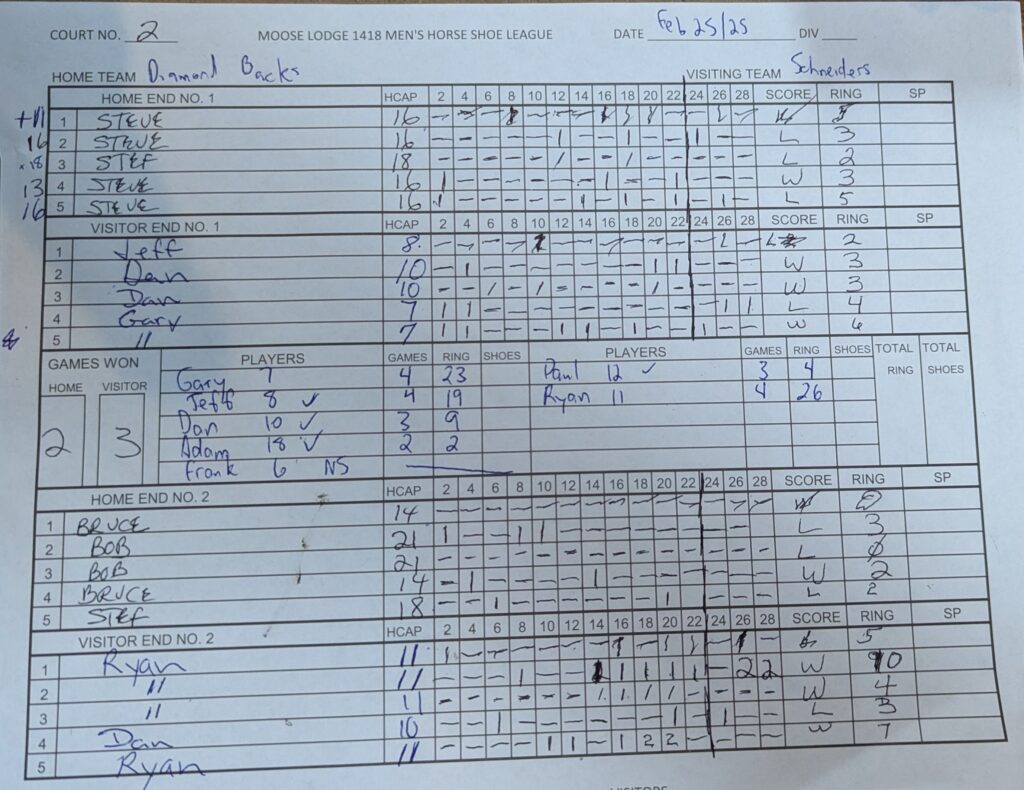 COURT NO. 2 MOOSE LODGE 1418 MEN'S HORSE SHOE LEAGUE DATE Feb 25/25 DIV
HOME TEAM Diamond Backs VISITING TEAM Schneiders
HOME END NO. 1 HCAP 2 4 6 8 10 12 14 16 18 20 22 24 26 28 SCORE RING SP
1 STEVE 16
16 2 STEVE 16 - - - - - 1 - - 1 - - 1 - - L 3
18 3 STEF 18 - - - - - 1 - - 1 - - - - - L 2
13 4 STEVE 16 1 - - - - - - 1 - - 1 - - - W 3
16 5 STEVE 16 1 - - - - - 1 - 1 - 1 - 1 - L 5
VISITOR END NO. 1 HCAP 2 4 6 8 10 12 14 16 18 20 22 24 26 28 SCORE RING SP
1 Jeff 8 2
2 Dan 10 - 1 - - - - - - - 1 1 - - - W 3
3 Dan 10 - - 1 - 1 - - - - 1 - - - - W 3
4 Gary 7 1 1 - - - - - - - - - - 1 1 L 4
5 " 7 1 1 - - - 1 1 - 1 - - 1 - - W 6
GAMES WON PLAYERS GAMES RING SHOES PLAYERS GAMES RING SHOES TOTAL RING TOTAL SHOES
HOME VISITOR
2 3
Gary 7 4 23 Paul 12 ✓ 3 4
Jeff 8 ✓ 4 19 Ryan 11 4 26
Dan 10 ✓ 3 9
Adam 18 ✓ 2 2
Frank 6 NS
HOME END NO. 2 HCAP 2 4 6 8 10 12 14 16 18 20 22 24 26 28 SCORE RING SP
1 BRUCE 14 - - - - - - - - - - - - - -
2 BOB 21 1 - - 1 1 - - - - - - - - L 3
3 BOB 21 - - - - - - - - - - - - - - L 0
4 BRUCE 14 - 1 - - - - 1 - - - - - - - W 2
5 STEF 18 - - 1 - - - - - - 1 - - - - L 2
VISITOR END NO. 2 HCAP 2 4 6 8 10 12 14 16 18 20 22 24 26 28 SCORE RING SP
1 Ryan 11 5
2 " 11 - - - 1 - - 1 1 1 1 1 - 2 2 W 10
3 " 11 - - - - - - 1 1 1 1 - - - - W 4
4 Dan 10 - - 1 - - - - - - 1 - 1 - - L 3
5 Ryan 11 - - - - 1 1 - 1 2 2 - - - - W 7